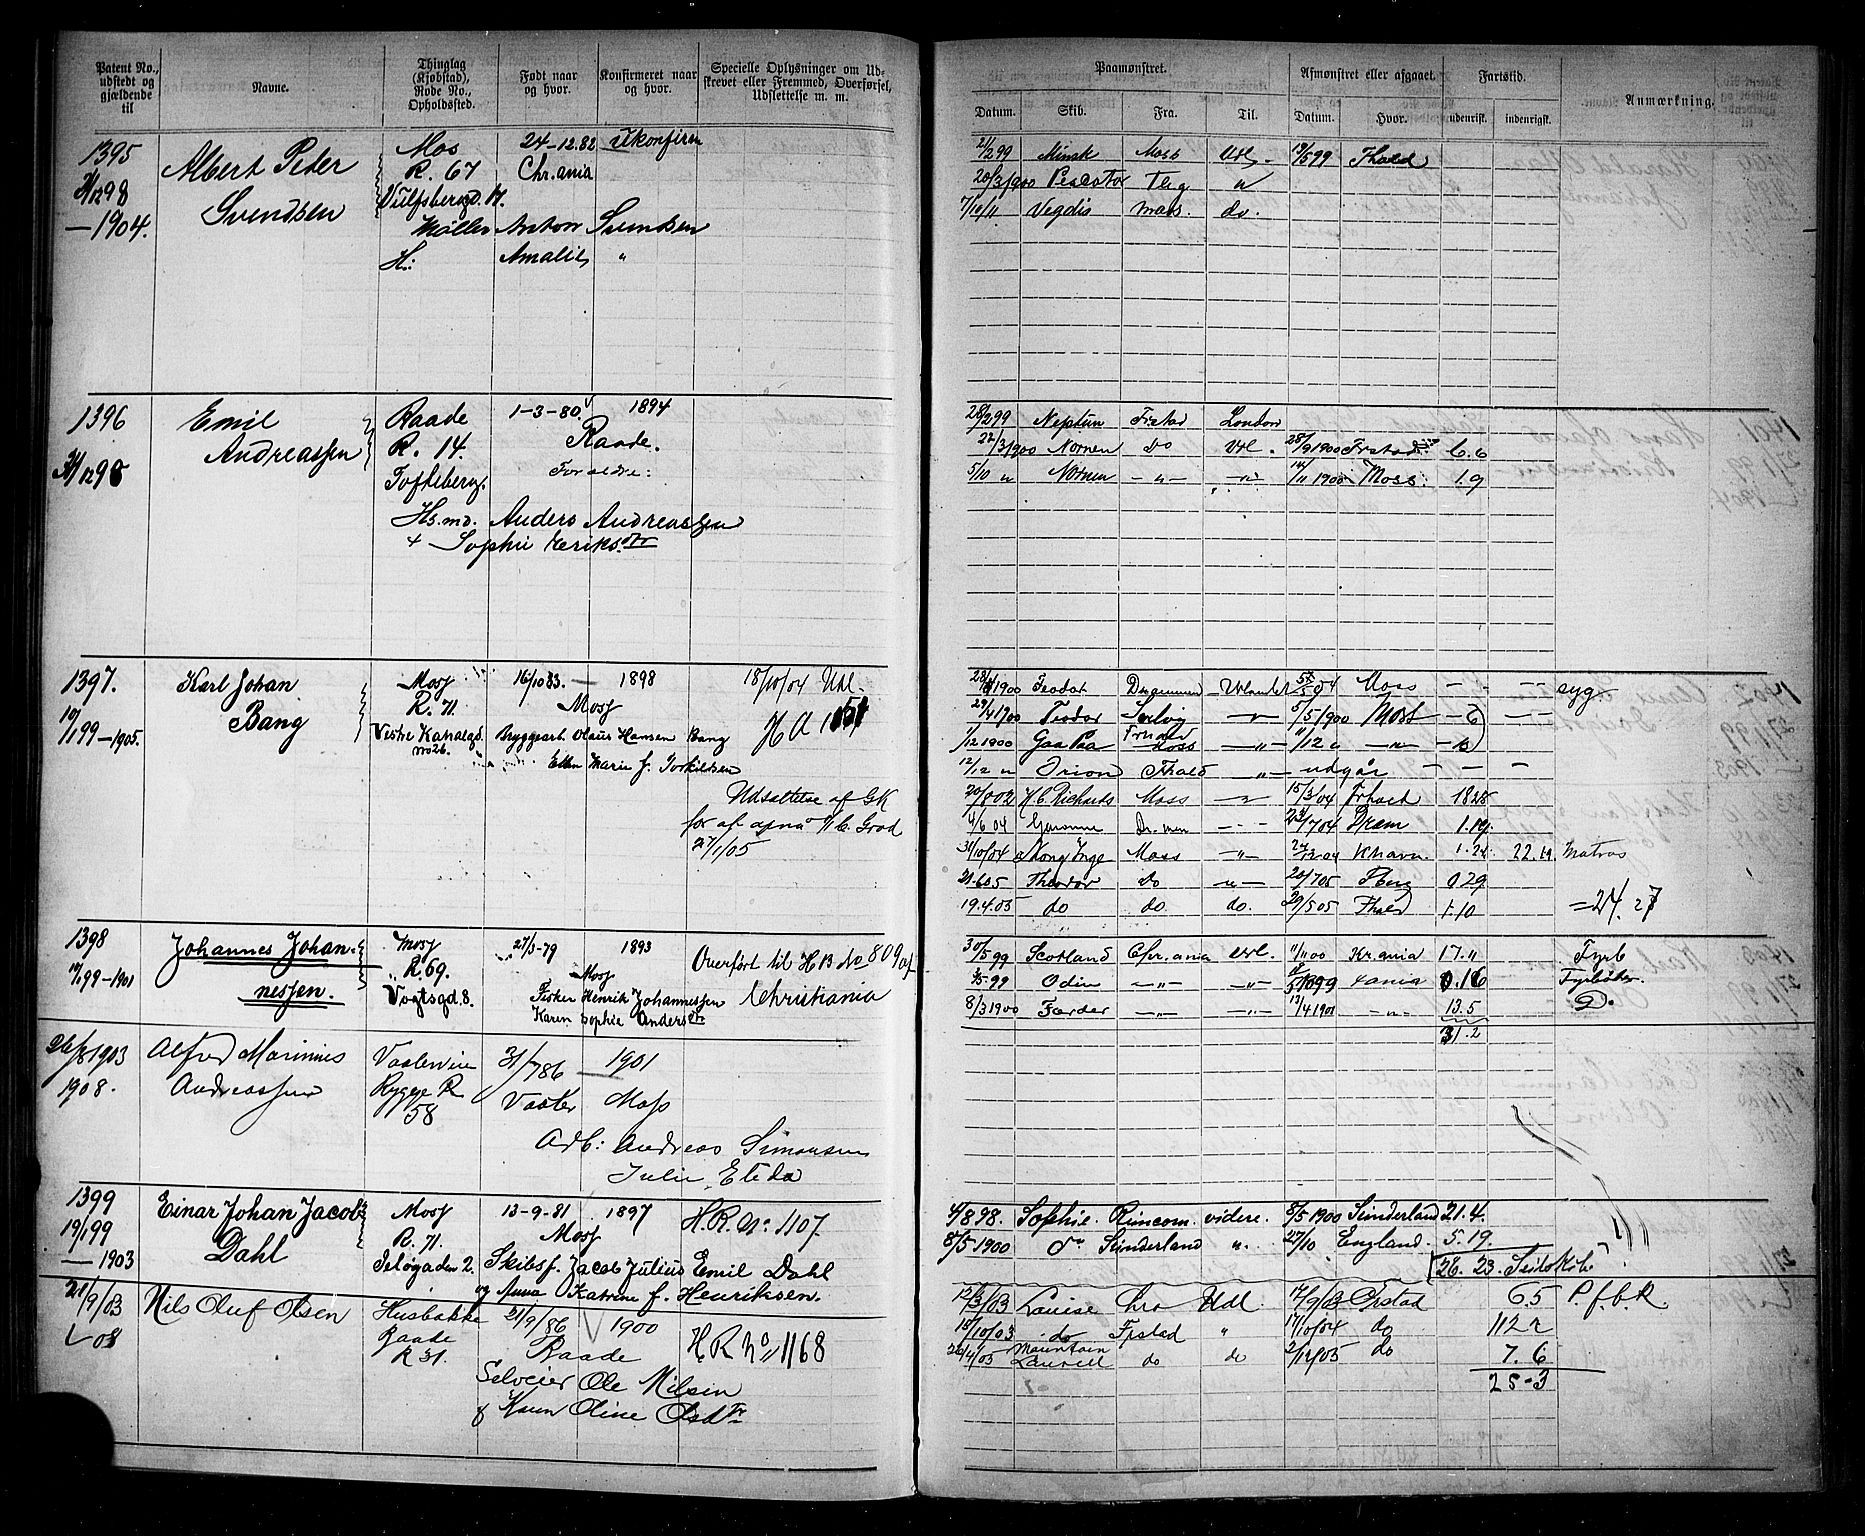 Patent No., udstedt og gjældende til
Navne.
Thinglag (Kjøbstad), Rode No., Opholdssted.
Født naar og hvor.
Konfirmeret naar og hvor.
Specielle Oplysninger om Udskrevet eller Fremmed, Overførsel, Udslettelse m. m.
Paamønstret.
Afmønstret eller afgaaet.
Fartstid.
Anmærkning.
Datum. Skib. Fra. Til. Datum. Hvor. udenrigsk. indenrigsk.
1395 Albert Peter Mos 24-12.82 ukonfirm
31/12 98 Svendsen R. 67 Chr.ania
—1904. Wulfsbergd.
Møller Anton Svendsen
H: Amalie "
2/2 99 Minsk Moss Udl. 19/5 99 Fhald
20/3 900 Pescator
7/10 " Vegdis Moss. do.
1396 Emil Raade 1-3-80. 1894
31/12 98 Andreassen R. 14. Raade.
Tofteberg. Forældre:
Hs.md. Anders Andreassen
+ Sophie Eriksdtr
28/2 99 Neptun Frstad London
22/3 900 Nornen do Udl. 28/9 1900 Frstad 6.6
5/10 " Nornen - " - - " - 14/11 1900 Moss. 1.9
1397. Karl Johan Moss 16/10 83. — 1898 18/10/04 Udl.
10/1 99—1905. Bang R. 71. Moss H A
Vestre Kanalgd. no 26. Bryggearb. Olaus Hansen Bang
Ellen Marie f. Torkildsen
Udsættelse af GK
27/1/05
1900 Teodor Drammen Udlandet Moss - - - syg.
29/4 1900 Teodor 5/5-1900 Moss
1/12 1900 Gaa Paa Moss - " -
12/12 " Orion Fhald - " - udgår - - -
20/8 02 H.C. Richards Moss 15/3/04 1828
4/6 04 Garonne Dr.men - - - 23/7 04 Dram 1.19.
31/10/04 Kong Inge Moss - " - 24/12 04 Khavn. 1.24. 22.19 Matros
21.6 05 Theodor do 20/7 05 Fberg 0 29
19.4.05 do do. do. 29/5 05 Fhald 1.10 =24.27
1398 Johannes Johan- Moss 27/3-79 1893 Overført til H B No 809 af
10/1 99—1901 nessen. R. 69. Moss Christiania
Vogtsgd. 8. Fisker Henrik Johannessen
Karen Sophie Andersdtr
30/5 99 Scotland Chr.ania Udl. 1/11 00 Kr.ania 17.11 Fyrb
99 Odin - " - - " - 99 xania 0.16 Fyrbøter
8/3 1900 Færder - " - - " - 13/4 1901 - " - 13.5 D.
31.2
26/8 1903 Alfred Marinius 31/7 86 — 1901
1908. Andreassen Rygge R 58 Vaaler Moss
Arb: Andreas Simonsen
Julie
1399 Einar Johan Jacob Moss 13-9-81 1897 H.R. No. 1107.
19/1 99 Dahl R. 71. Moss
—1903 Jeløgaden 2. Skibsf. Jacob Julius Emil Dahl
og Anna Katrine f. Henriksen.
8 98. Sophie. Runcorn. videre. 8/5 1900 Sunderland 21.4.
8/5 1900 do Sunderland ". 27/10 England. 5.19
26. 23.
21/9/03 Nils Oluf Olsen Husbakke 21/9/86 1900 H.R No 1168
08 Raade R 31. Raade
Selveier Ole Nilsen
& Karen Oline Olsdtr
12/3/03 Louise Udl. 17/9/03 Frstad 6.5 P.f.b.R.
18/10/03 do Frstad " 17/10/04 do
26/4/05 Mountain Laurell do do 2/12/05 do 7.6
25-3